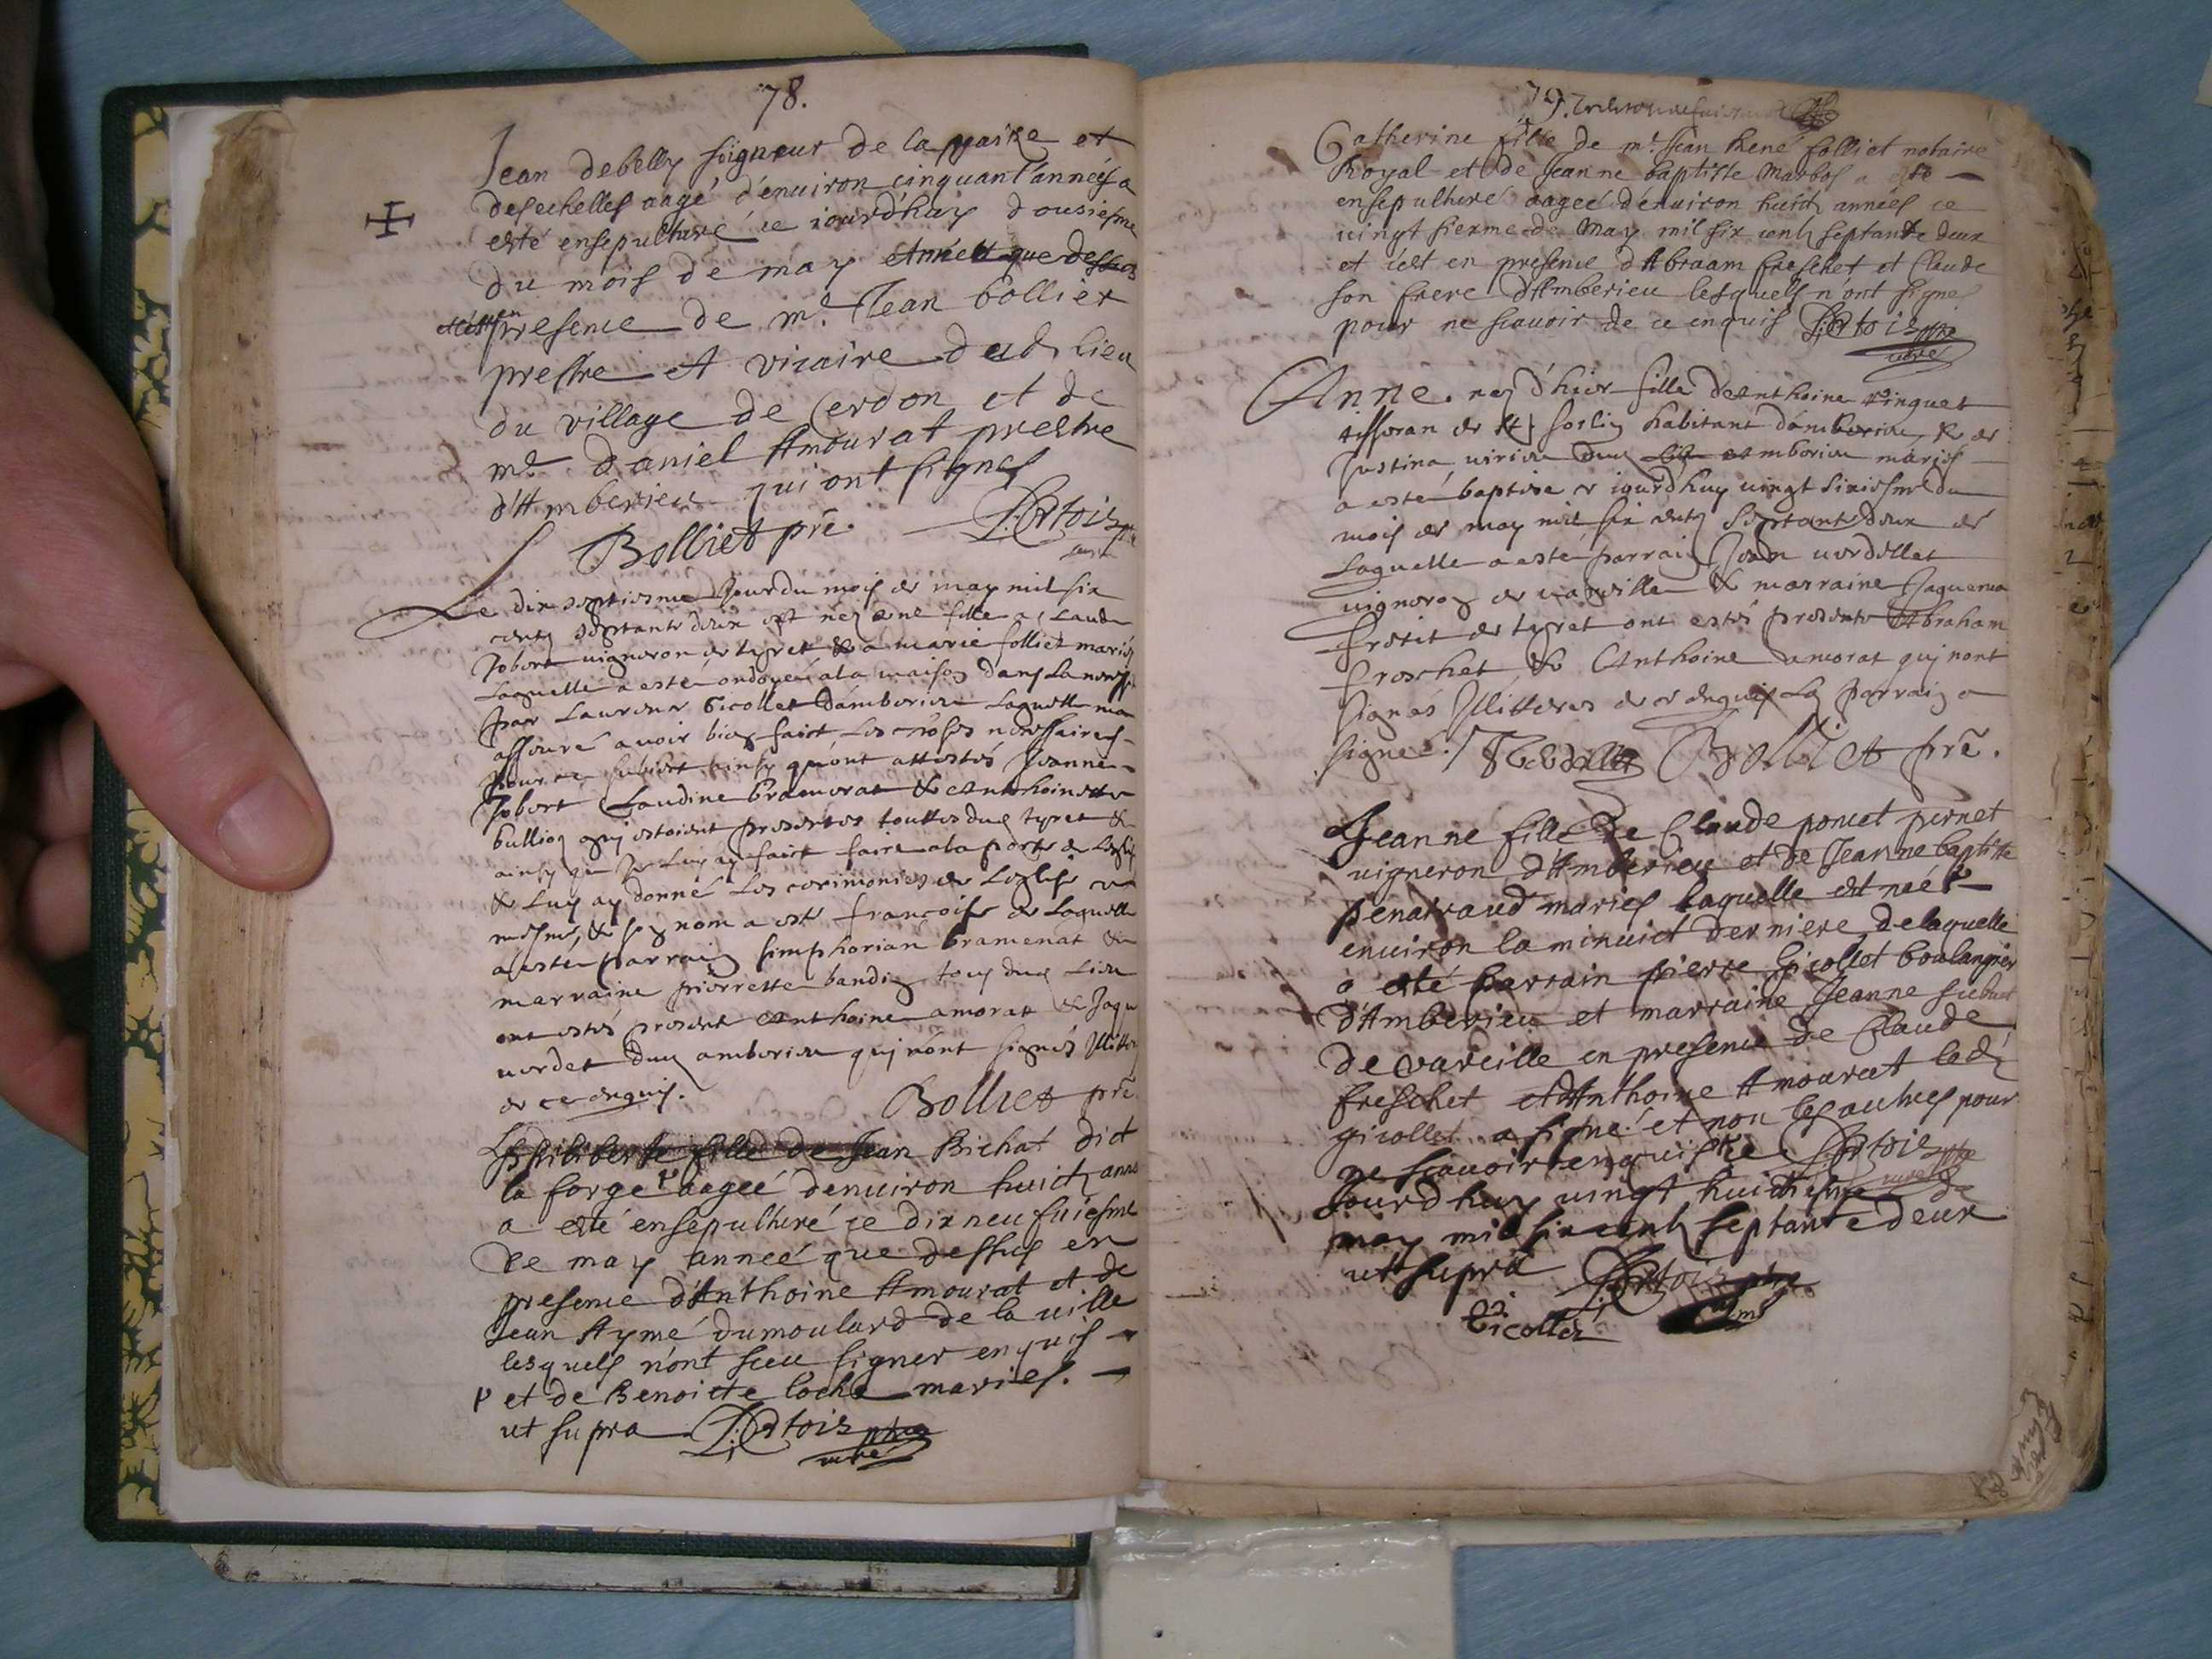 78.
Jean debelly seigneur de la et
desechelles aagé d'enuiron cinquant'années a
esté ensepulturé ce iourd'huy dousiesme
du mois de may année que dessus
et c'est en presence de mre Jean bolliet
prestre et vicaire dud lieu
du village de Cerdon et de
mre daniel Amourat prestre
d'Amberieu qui ont signes
Bolliet pre P. Ortois
Le dix septiesme Jour du mois de may mil six
cents septante deux est née une fille a Claude
Jobert vigneron de tyret & a marie folliet mariés
Laquelle a esté ondoyée a la maison dans la
par Laurence Gicollet damberieu Laquelle ma
assouré avoir bien faict Les choses necessaires
pour ce subiect ainsy qu'ont attestés Jeanne
Jobert Claudine bramerat & Anthoinette
bullion qui estoient presentes touttes dud tyret &
ainsy que Je Luy ay faict faire a la porte de Leglise
& Luy ay donné Les cerimonies de Leglise
mesme, & son nom a esté françoise de Laquelle
a esté parrain simphorian bramenat &
marraine pierrette bandin tous dud Lieu
ont estés present Anthoine amorat & Jaque
verdet dud amberieu qui n'ont signés Illitterés
de ce enquis.
Bolliet pre
Philiberte fille de Jean Bichat dict
la forge aageé denuiron huict ans
a esté ensepulturé ce dix neufuiesme
de may anneé que dessus en
presence d'Anthoine Amourat et de
Jean Aymé dumoulard de la uille
lesquels n'ont sceu signer enquis
et de Benoicte locha mariés.
ut supra P. Ortois ptre
curé
79.
Catherine fille de mre Jean René folliet notaire
Royal et de Jeanne baptiste Marbos a esté
ensepulturé aageé d'enuiron huict années ce
uingt siexme de May mil six cents septante deux
et c'est en presence d'Abraam freschet et Claude
son frere d'Amberieu lesquels n'ont signes
pour ne scauoir de ce enquis P. Ortois ptre
curé
Anne. neé d'hier fille de Anthoine vinguet
tisseran de St sorlin habitant d'amberieu & de
Justina uirieu dud amberieu mariés
a esté baptisée ce iourd'huy uingt sixiesme du
mois de may mil six cents septante deux de
Laquelle a esté parrain Jean uerdellet
uigneron de uareille & marraine Jaquema
frotit de tyret ont estés presents Abraham
freschet & Anthoine amorat qui n'ont
signés Illitteres de ce enquis Le parrain a
signeé./. Bolliet pre.
Jeanne fille de Claude poncet pernet
uigneron d'Amberieu et de Jeanne baptiste
penairaud mariés laquelle est neé
enuiron la minuict derniere, de laquelle
a esté parrain pierre gicollet boulangier
d'Amberieu et marraine Jeanne
de vareille en presence de Claude
freschet et d'Anthoine Amourat led
gicollet a signé et non les autres pour
ne scauoir enquis ce P. Ortois ptre
Jourd'huy uingt huictiesme de
may mil six cents septante deux
ut supra P. Ortois ptre
Gicollet